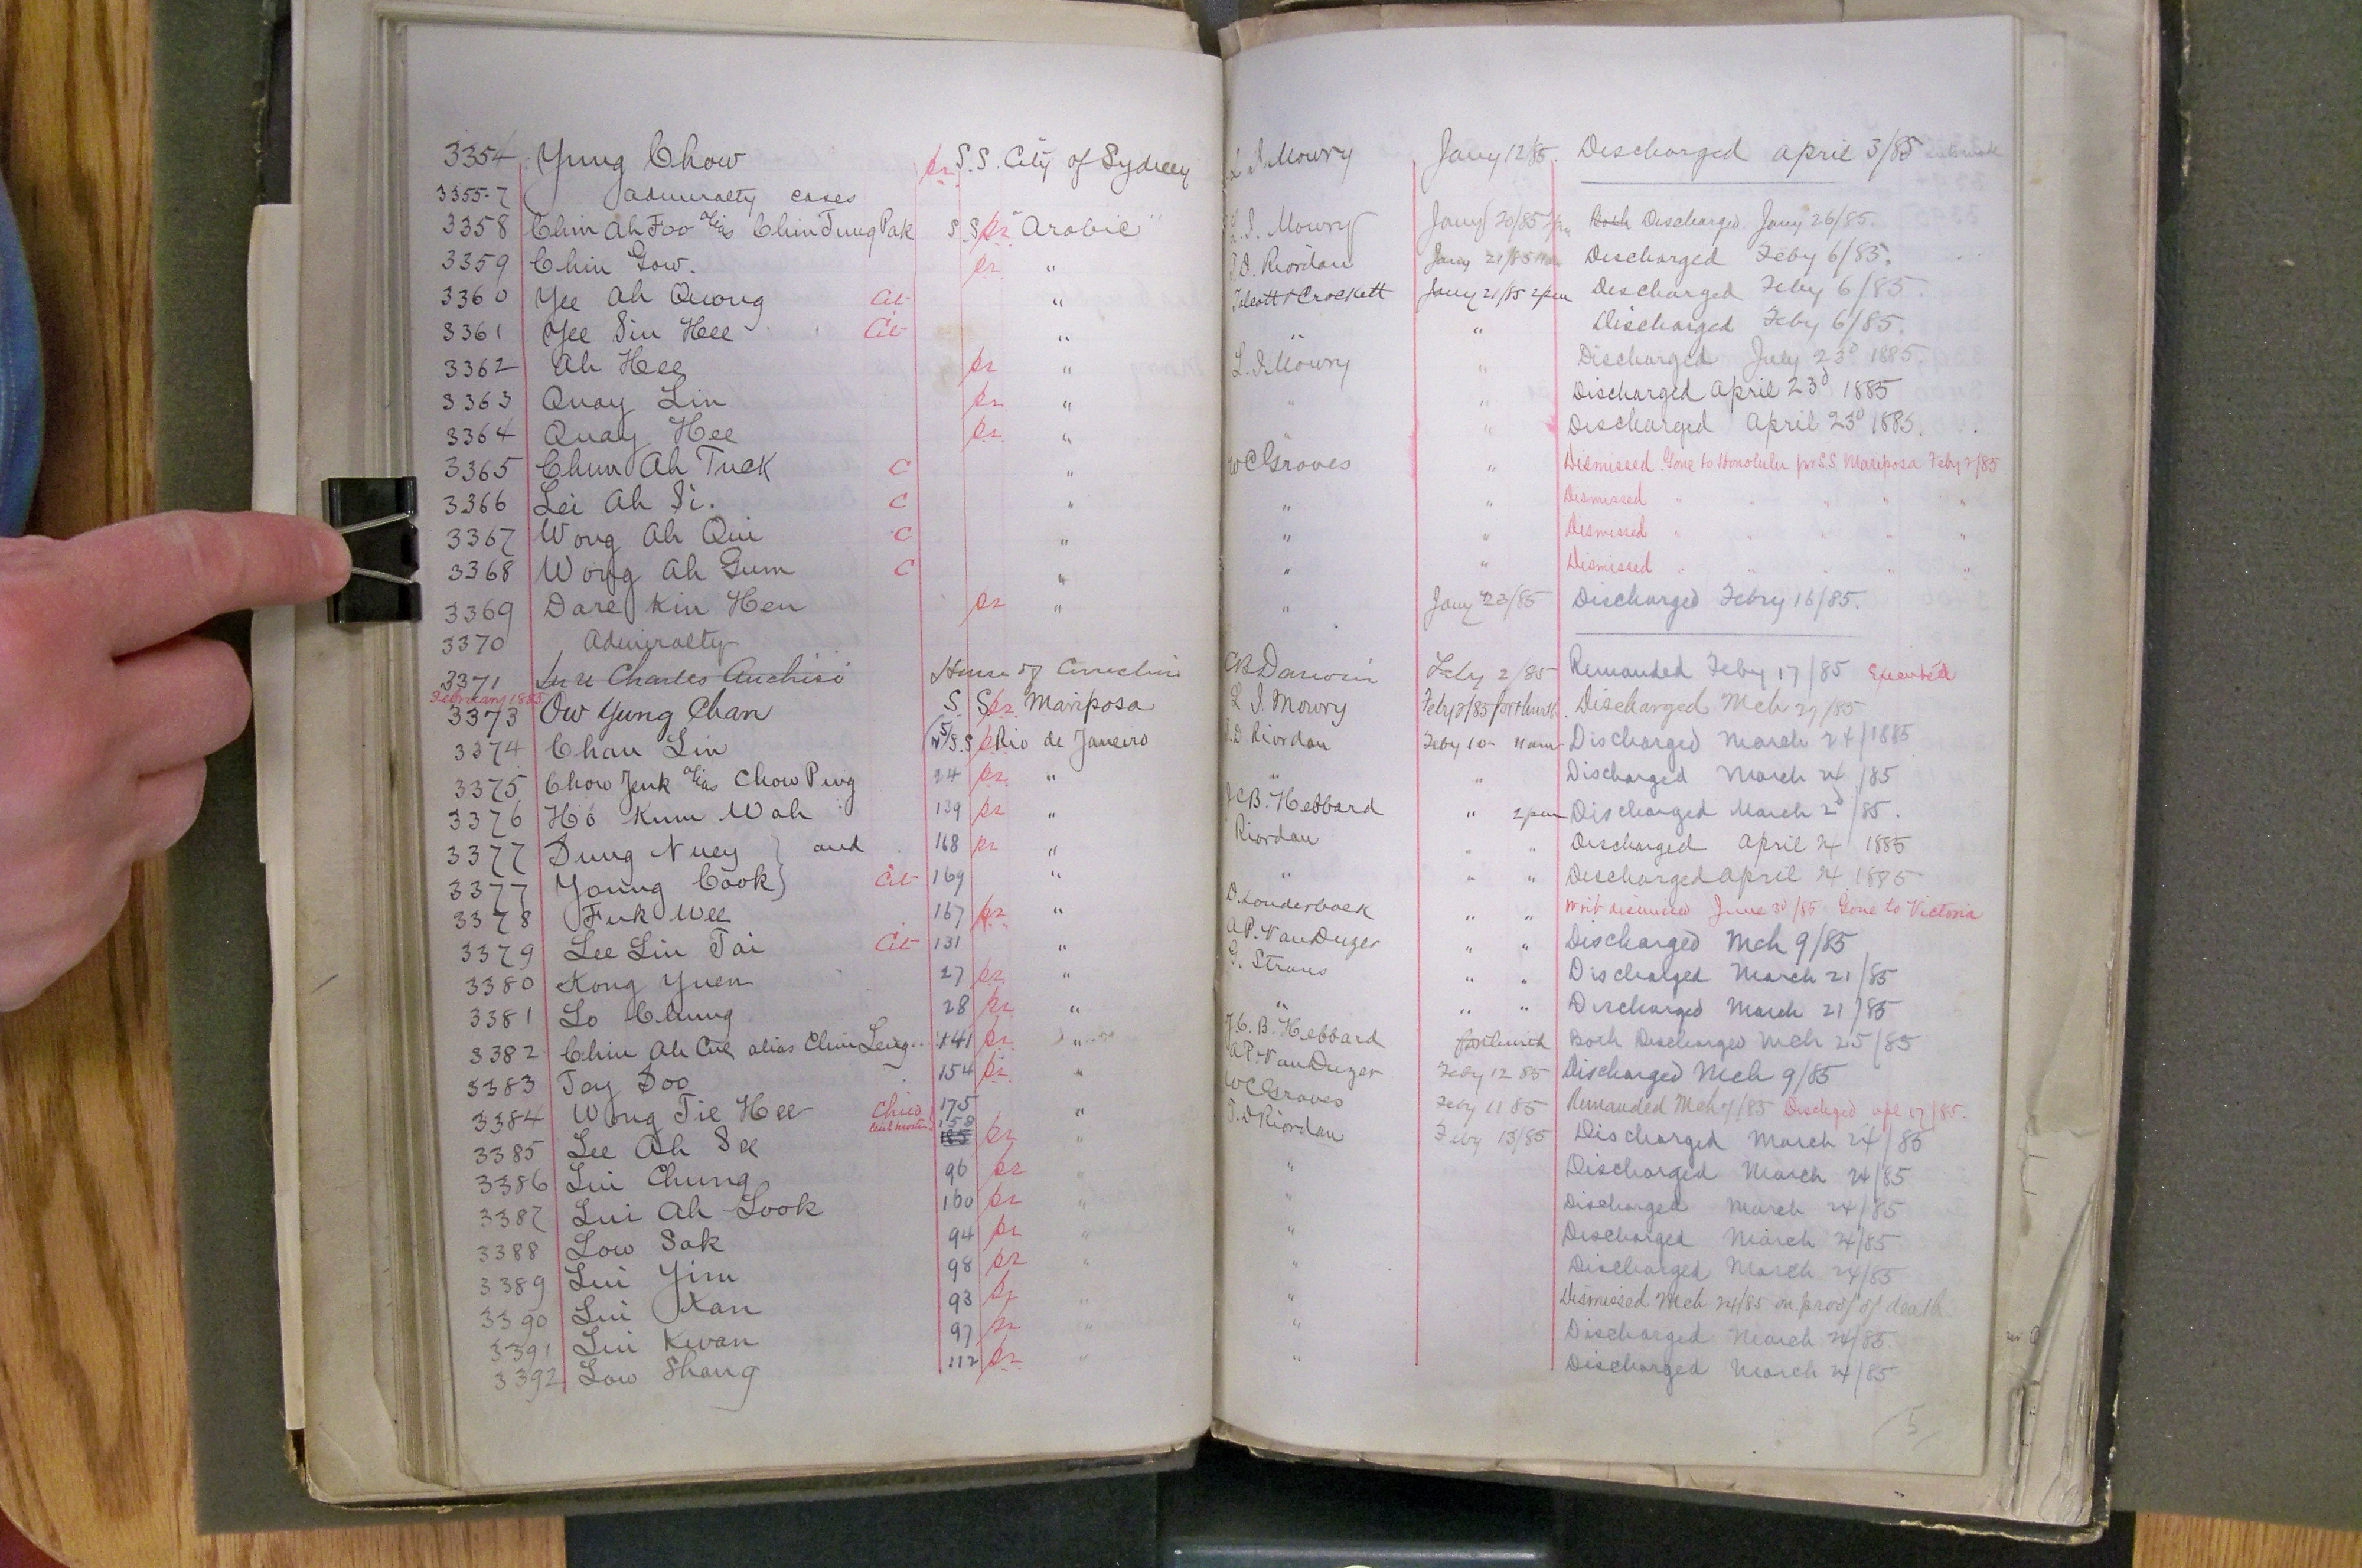 3354 Yung Chow pr S.S. City of Sydney L I Mowry Jany 12/85. Discharged april 3/85
3355-7 admiralty cases
3358 Chin Ah Foo alias Chin Jung Pak S.S. pr "Arabic" L. I. Mowry Jany 20/85 Both Discharged Jany 26/85.
3359 Chin Gow. pr " T.D. Riordan Jany 21/85 11am Discharged Feby 6/85.
3360 Yee Ah Quong Cit " Tilcott & Crockett Jany 21/85 2pm Discharged Feby 6/85.
3361 Yee Sin Hee Cit " " " Discharged Feby 6/85.
3362 Ah Hee pr " L. I. Mowry " Discharged July 23d 1885.
3363 Quay Lin pr " " " Discharged April 23d 1885
3364 Quay Hee pr " " " Discharged April 23d 1885.
3365 Chun Ah Tuck C " WC Groves " Dismissed. Gone to Honolulu pr S.S. Mariposa Feby 2/85
3366 Lei Ah Si. C " " " Dismissed " " " " "
3367 Wong Ah Qui C " " " Dismissed " " " " "
3368 Wong Ah Gum C " " " Dismissed " " " " "
3369 Dare Kin Hen pr " " Jany 23/85 Discharged Febry 16/85.
3370 Admiralty
3371 In re Charles Anchisi House of Correction CB Darwin Feby 2/85 Remanded Feby 17/85 Executed
February 1885
3373 Ow Yung Chan S. S. pr. Mariposa L I. Mowry Feby 9/85 forthwith. Discharged Mch 29/85
3374 Chan Lin S.S pr Rio de Janeiro T.D Riordan Feby 10- 11am Discharged March 24/1885
3375 Chow Jenk alias Chow Ping 24 pr " " " Discharged March 24/85
3376 Ho Kum Wah 139 pr " J.C.B. Hebbard " 2pm Discharged March 2d/85.
3377 Dung Nuey } and 168 pr " Riordan " " Discharged April 24 1885
3377 Young Cook } Cit 169 " " " " Discharged April 24 1885
3378 Fuk Wee 167 pr " D. Louderback " " Writ dismissed June 3d/85 Gone to Victoria
3379 Lee Lin Tai Cit 131 " A.P. Van Duzer " " Discharged Mch 9/85
3380 Kong Yuen 27 pr " G. Straus " " Discharged March 21/85
3381 Lo Chung 28 pr " " " " Discharged March 21/85
3382 Chin Ah Cue alias Chin Leng 141 pr " J.C.B. Hebbard forthwith Both Discharged Mch 25/85
3383 Tay Doo 154 pr " A.P. Van Duzer Feby 12 85 Discharged Mch 9/85
3384 Wong Tie Hee Child 175 " WC Groves Feby 11 85 Remanded Mch 7/85 Discharged apl 17/85.
3385 Lee Ah See 158 pr " T.D Riordan Feby 13/85 Discharged March 24/85
3386 Lui Chung 96 pr " " Discharged March 24/85
3387 Lui Ah Look 160 pr " " Discharged March 24/85
3388 Low Sak 94 pr " " Discharged March 24/85
3389 Lui Yim 98 pr " " Discharged March 24/85
3390 Lui Kan 93 pr " " Dismissed Mch 24/85 on proof of death
3391 Lui Kwan 97 pr " " Discharged March 24/85
3392 Low Shang 112 pr " " Discharged March 24/85